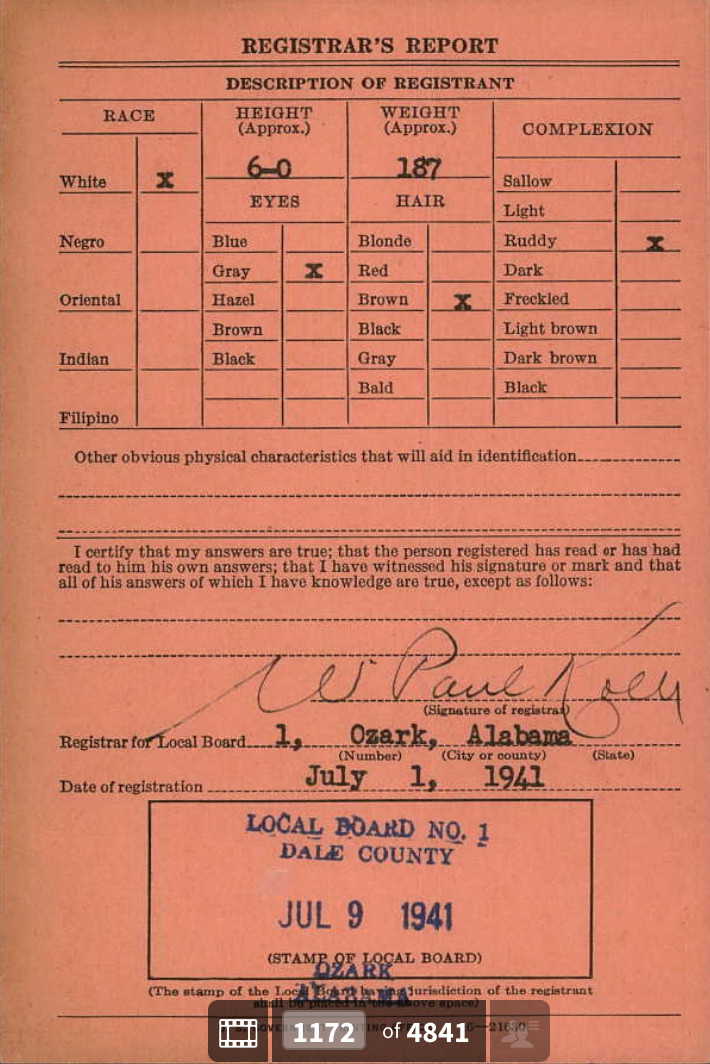 REGISTRAR'S REPORT
DESCRIPTION OF REGISTRANT
RACE
HEIGHT (Approx.)
WEIGHT (Approx.)
COMPLEXION
6-0
187
White X
Sallow
EYES
HAIR
Light
Negro
Blue
Blonde
Ruddy X
Gray X
Red
Dark
Oriental
Hazel
Brown X
Freckled
Brown
Black
Light brown
Indian
Black
Gray
Dark brown
Bald
Black
Filipino
Other obvious physical characteristics that will aid in identification
I certify that my answers are true; that the person registered has read or has had
read to him his own answers; that I have witnessed his signature or mark and that
all of his answers of which I have knowledge are true, except as follows:
W Paul
(Signature of registrar)
Registrar for Local Board 1, Ozark, Alabama
(Number) (City or county) (State)
Date of registration July 1, 1941
LOCAL BOARD NO. 1
DALE COUNTY
JUL 9 1941
(STAMP OF LOCAL BOARD)
OZARK
(The stamp of the Local Board having jurisdiction of the registrant
ALABAMA
shall be placed in the above space)
1172 of 4841